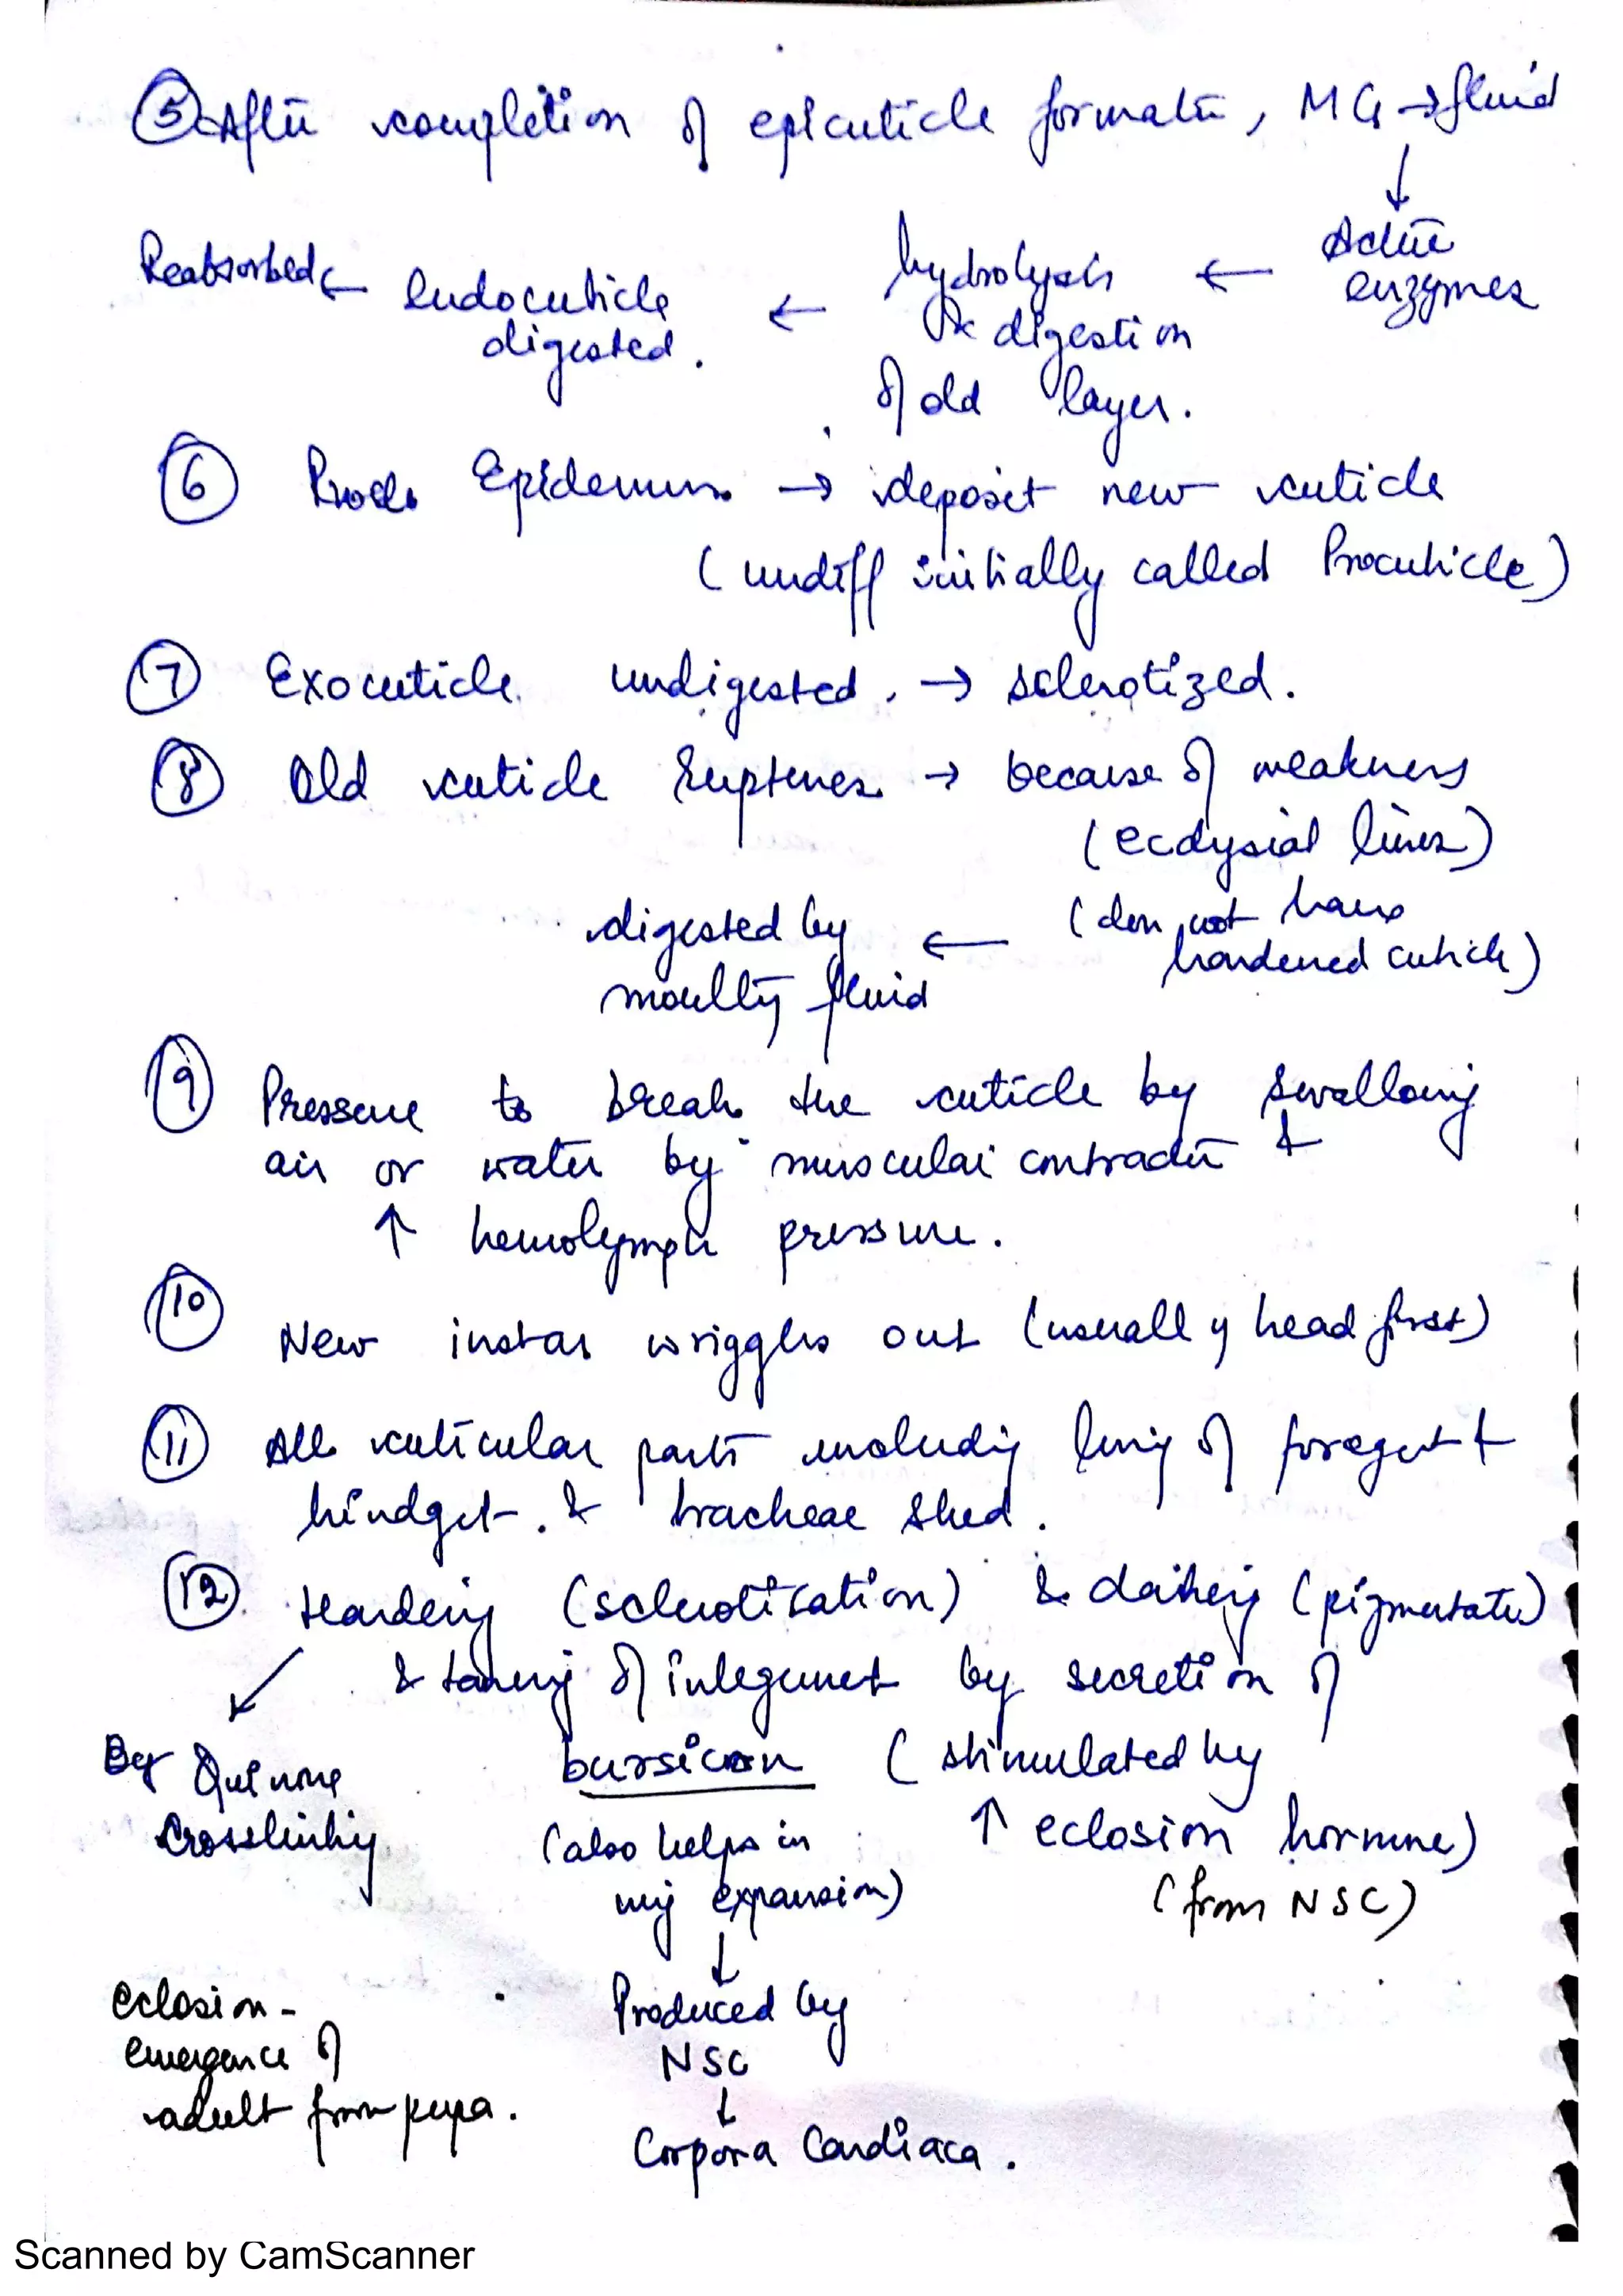 ⑤ After completion of epicuticle formatn, MG → fluid
↓
Active enzymes → hydrolysis & digestion of old layer. → endocuticle digested. → Reabsorbed
⑥ Epidermis → deposit new cuticle
(undiff initially called Procuticle)
⑦ Exocuticle undigested. → sclerotized.
⑧ Old cuticle ruptures → because of weakness
(ecdysial lines)
(do not have
hardened cuticle)
← digested by
moulting fluid
⑨ Pressure to break the cuticle by swallowing
air or water by muscular contractn &
↑ hemolymph pressure.
⑩ New instar wriggles out (usually head first)
⑪ All cuticular parts including lining of foregut &
hindgut. & tracheae shed.
⑫ Hardening (sclerotisation) & darkening (pigmentatn)
& tanning of integument by secretion of
bursicon (stimulated by
↑ eclosion hormone)
(from NSC)
By Quinone
Crosslinking
(also helps in
wing expansion)
↓
Produced by
NSC
↓
Corpora Cardiaca.
eclosion -
emergence of
adult from pupa.
Scanned by CamScanner